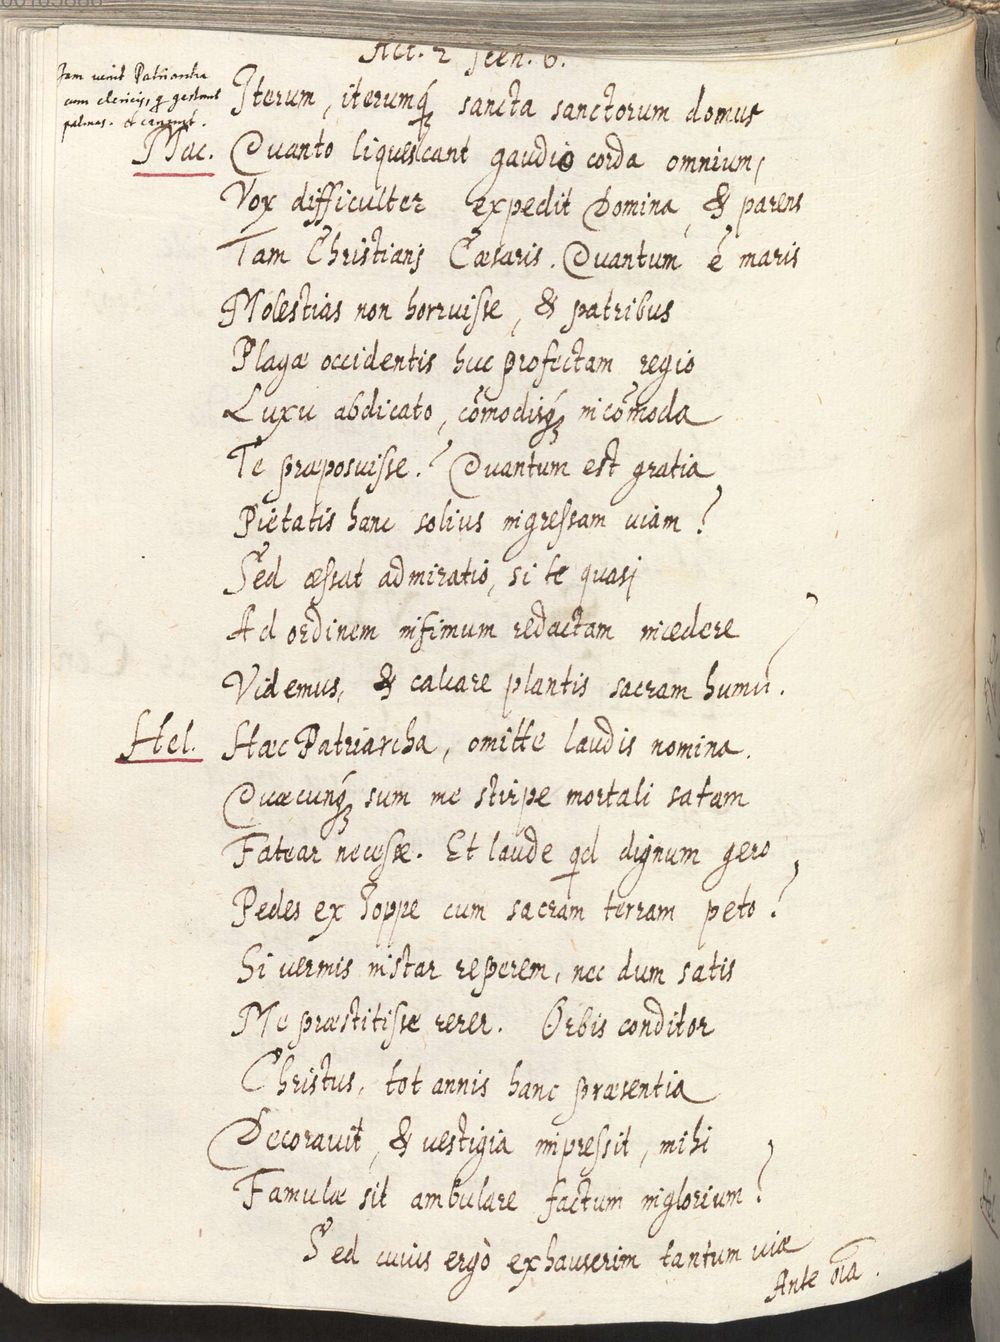 Act. 2 scen. 6.
Jam venit Patriarcha
cum clericis, q gestant
palmas. et canunt.
Iterum, iterumq́; sancta sanctorum domus
Mac. Quanto liquescant gaudio corda omnium,
Vox difficulter expedit Domina, & parens
Tam Christianj Cæsaris. Quantum ē maris
Molestias non horruisse, & patribus
Plagæ occidentis huc profectam regio
Luxu abdicato, cōmodisq́; incōmoda
Te præposuisse.? Quantum est gratia
Pietatis hanc solius ingressam viam?
Sed cessat admiratio, si te quasj
Ad ordinem infimum redactam incedere
Videmus, & calcare plantis sacram humū?
Hel. Hæc Patriarcha, omitte laudis nomina.
Quæcunq́; sum me stirpe mortali satam
Fatear necesse. Et laude qd dignum gero
Pedes ex Joppe cum sacram terram peto?
Si vermis instar reperem, nec dum satis
Me præstitisse rerer. Orbis conditor
Christus, tot annis hanc præsentia
Decoravit, & vestigia impressit, mihi
Famulæ sit ambulare factum inglorium?
Sed cuius ergò exhauserim tantum viæ
Ante oīa.